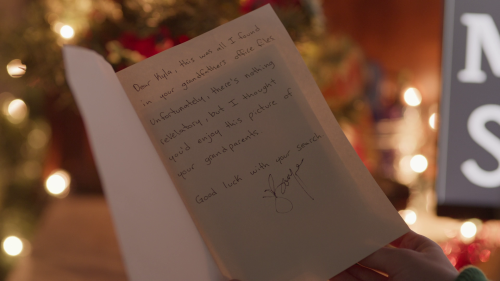 Dear Hyla, this was all I found
in your grandfather's office files.
Unfortunately, there's nothing
revelatory, but I thought
you'd enjoy this picture of
your grandparents.
Good luck with your search
N
S